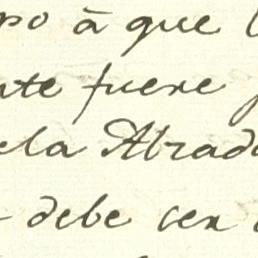 po à que
nte fuere
ela Abrad
debe ser